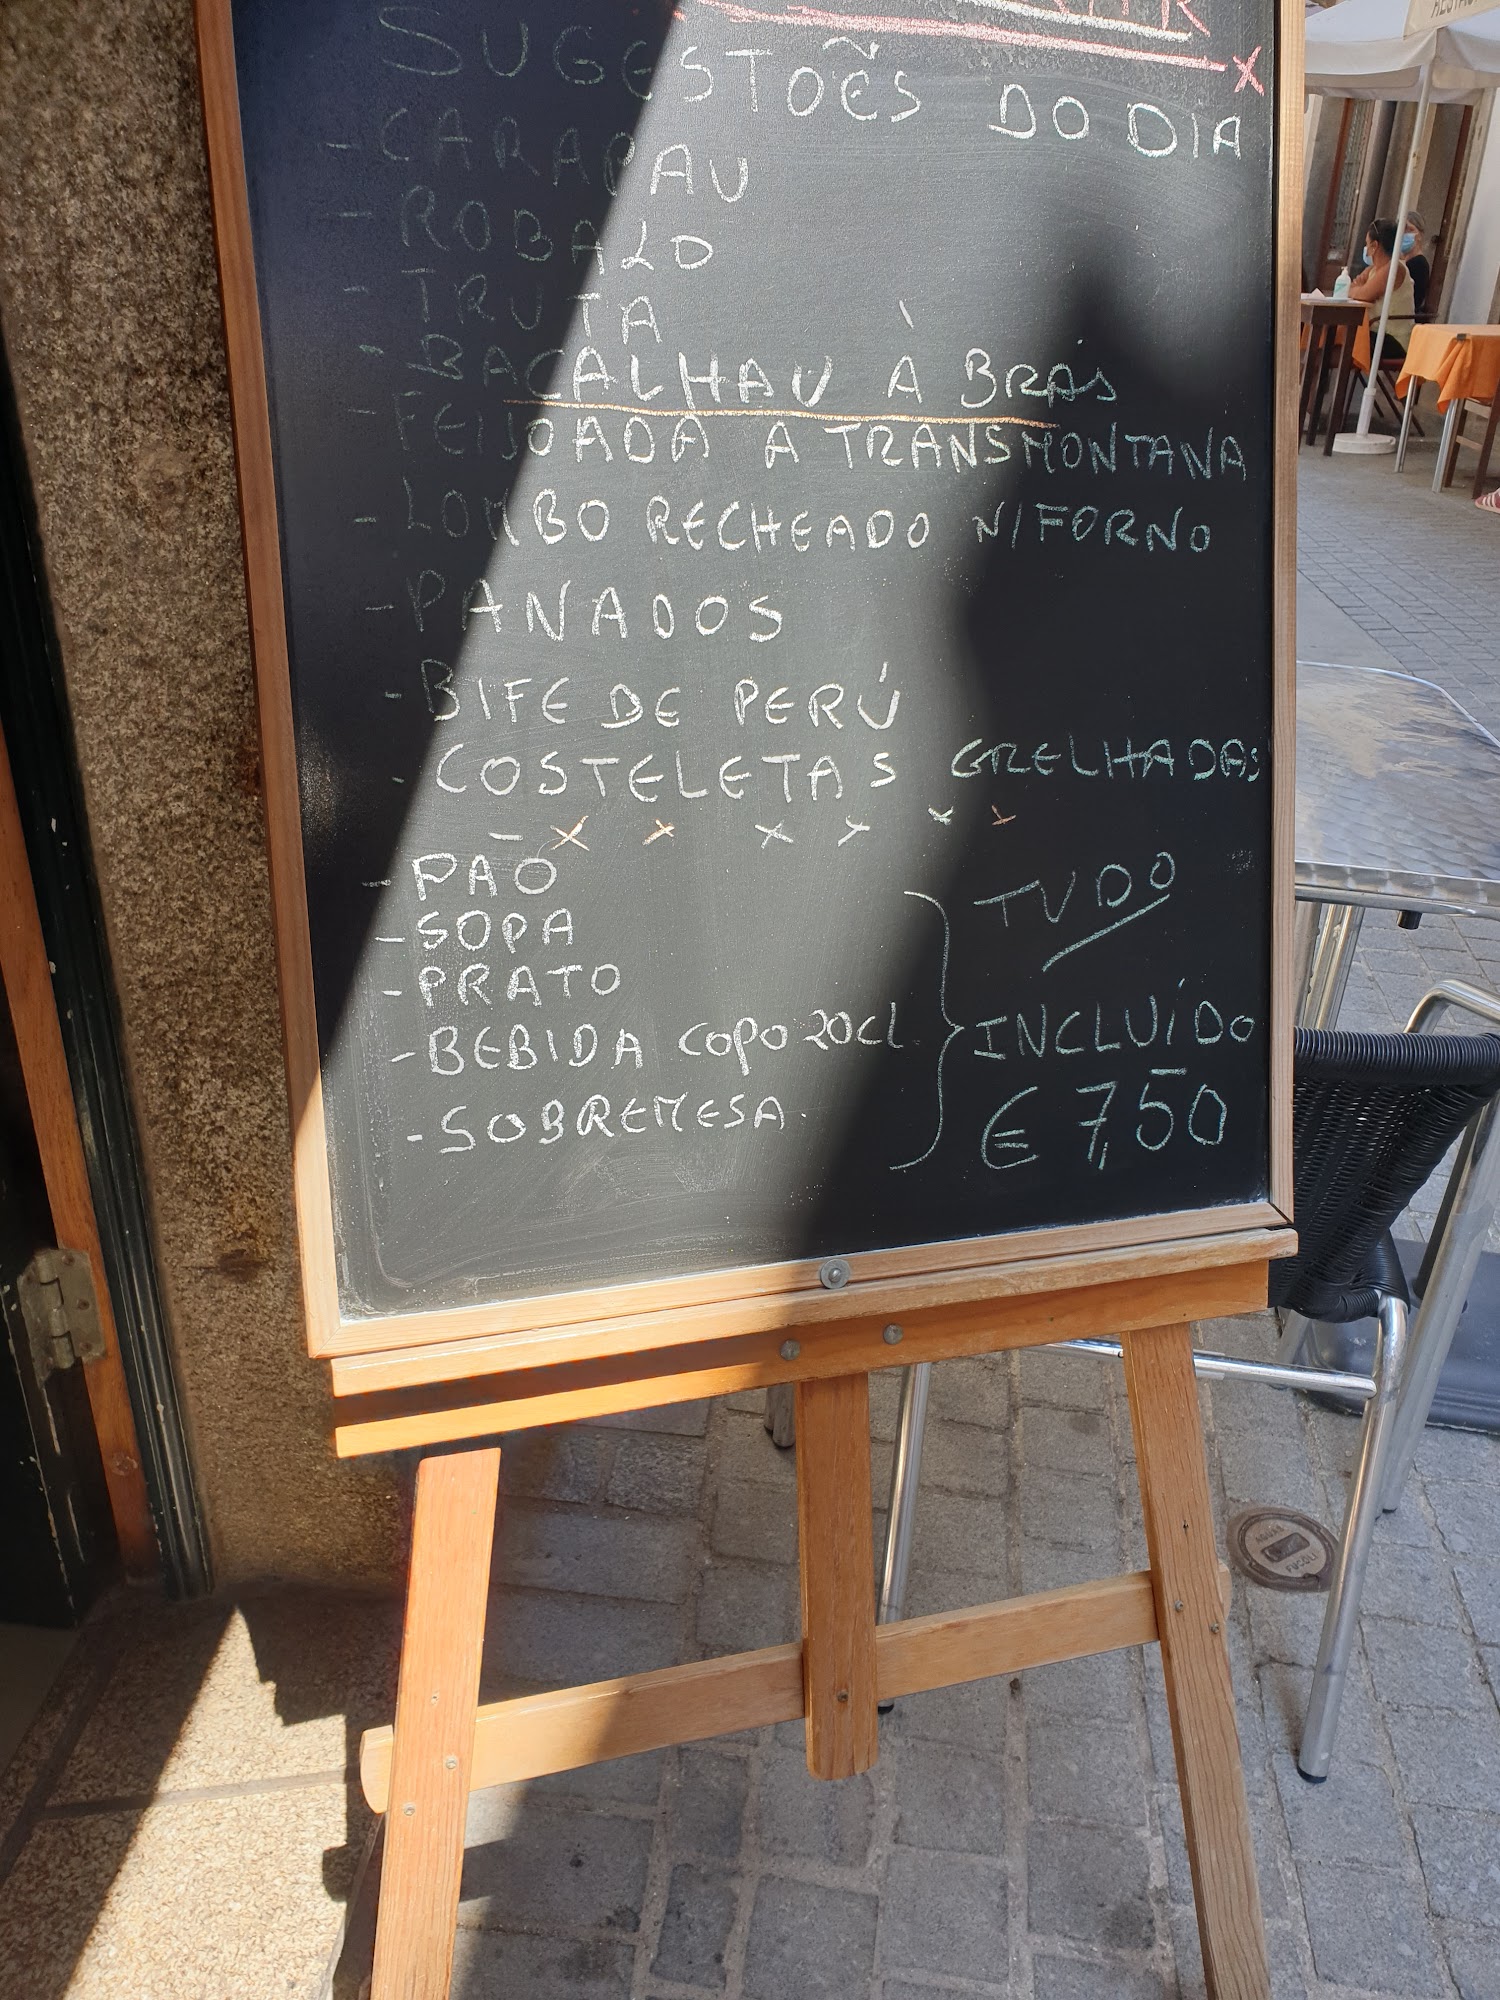 SUGESTOẼS DO DIA
- CARAPAU
- ROBALO
- TRUTA
- BACALHAU À BRÁS
- FEIJOADA A TRANSMONTANA
- LOMBO RECHEADO N/FORNO
- PANADOS
- BIFE DE PERÚ
- COSTELETAS GRELHADAS
- PÃO
- SOPA
- PRATO
- BEBIDA COPO 20CL.
- SOBREMESA.
TUDO
INCLUÍDO
€ 7,50